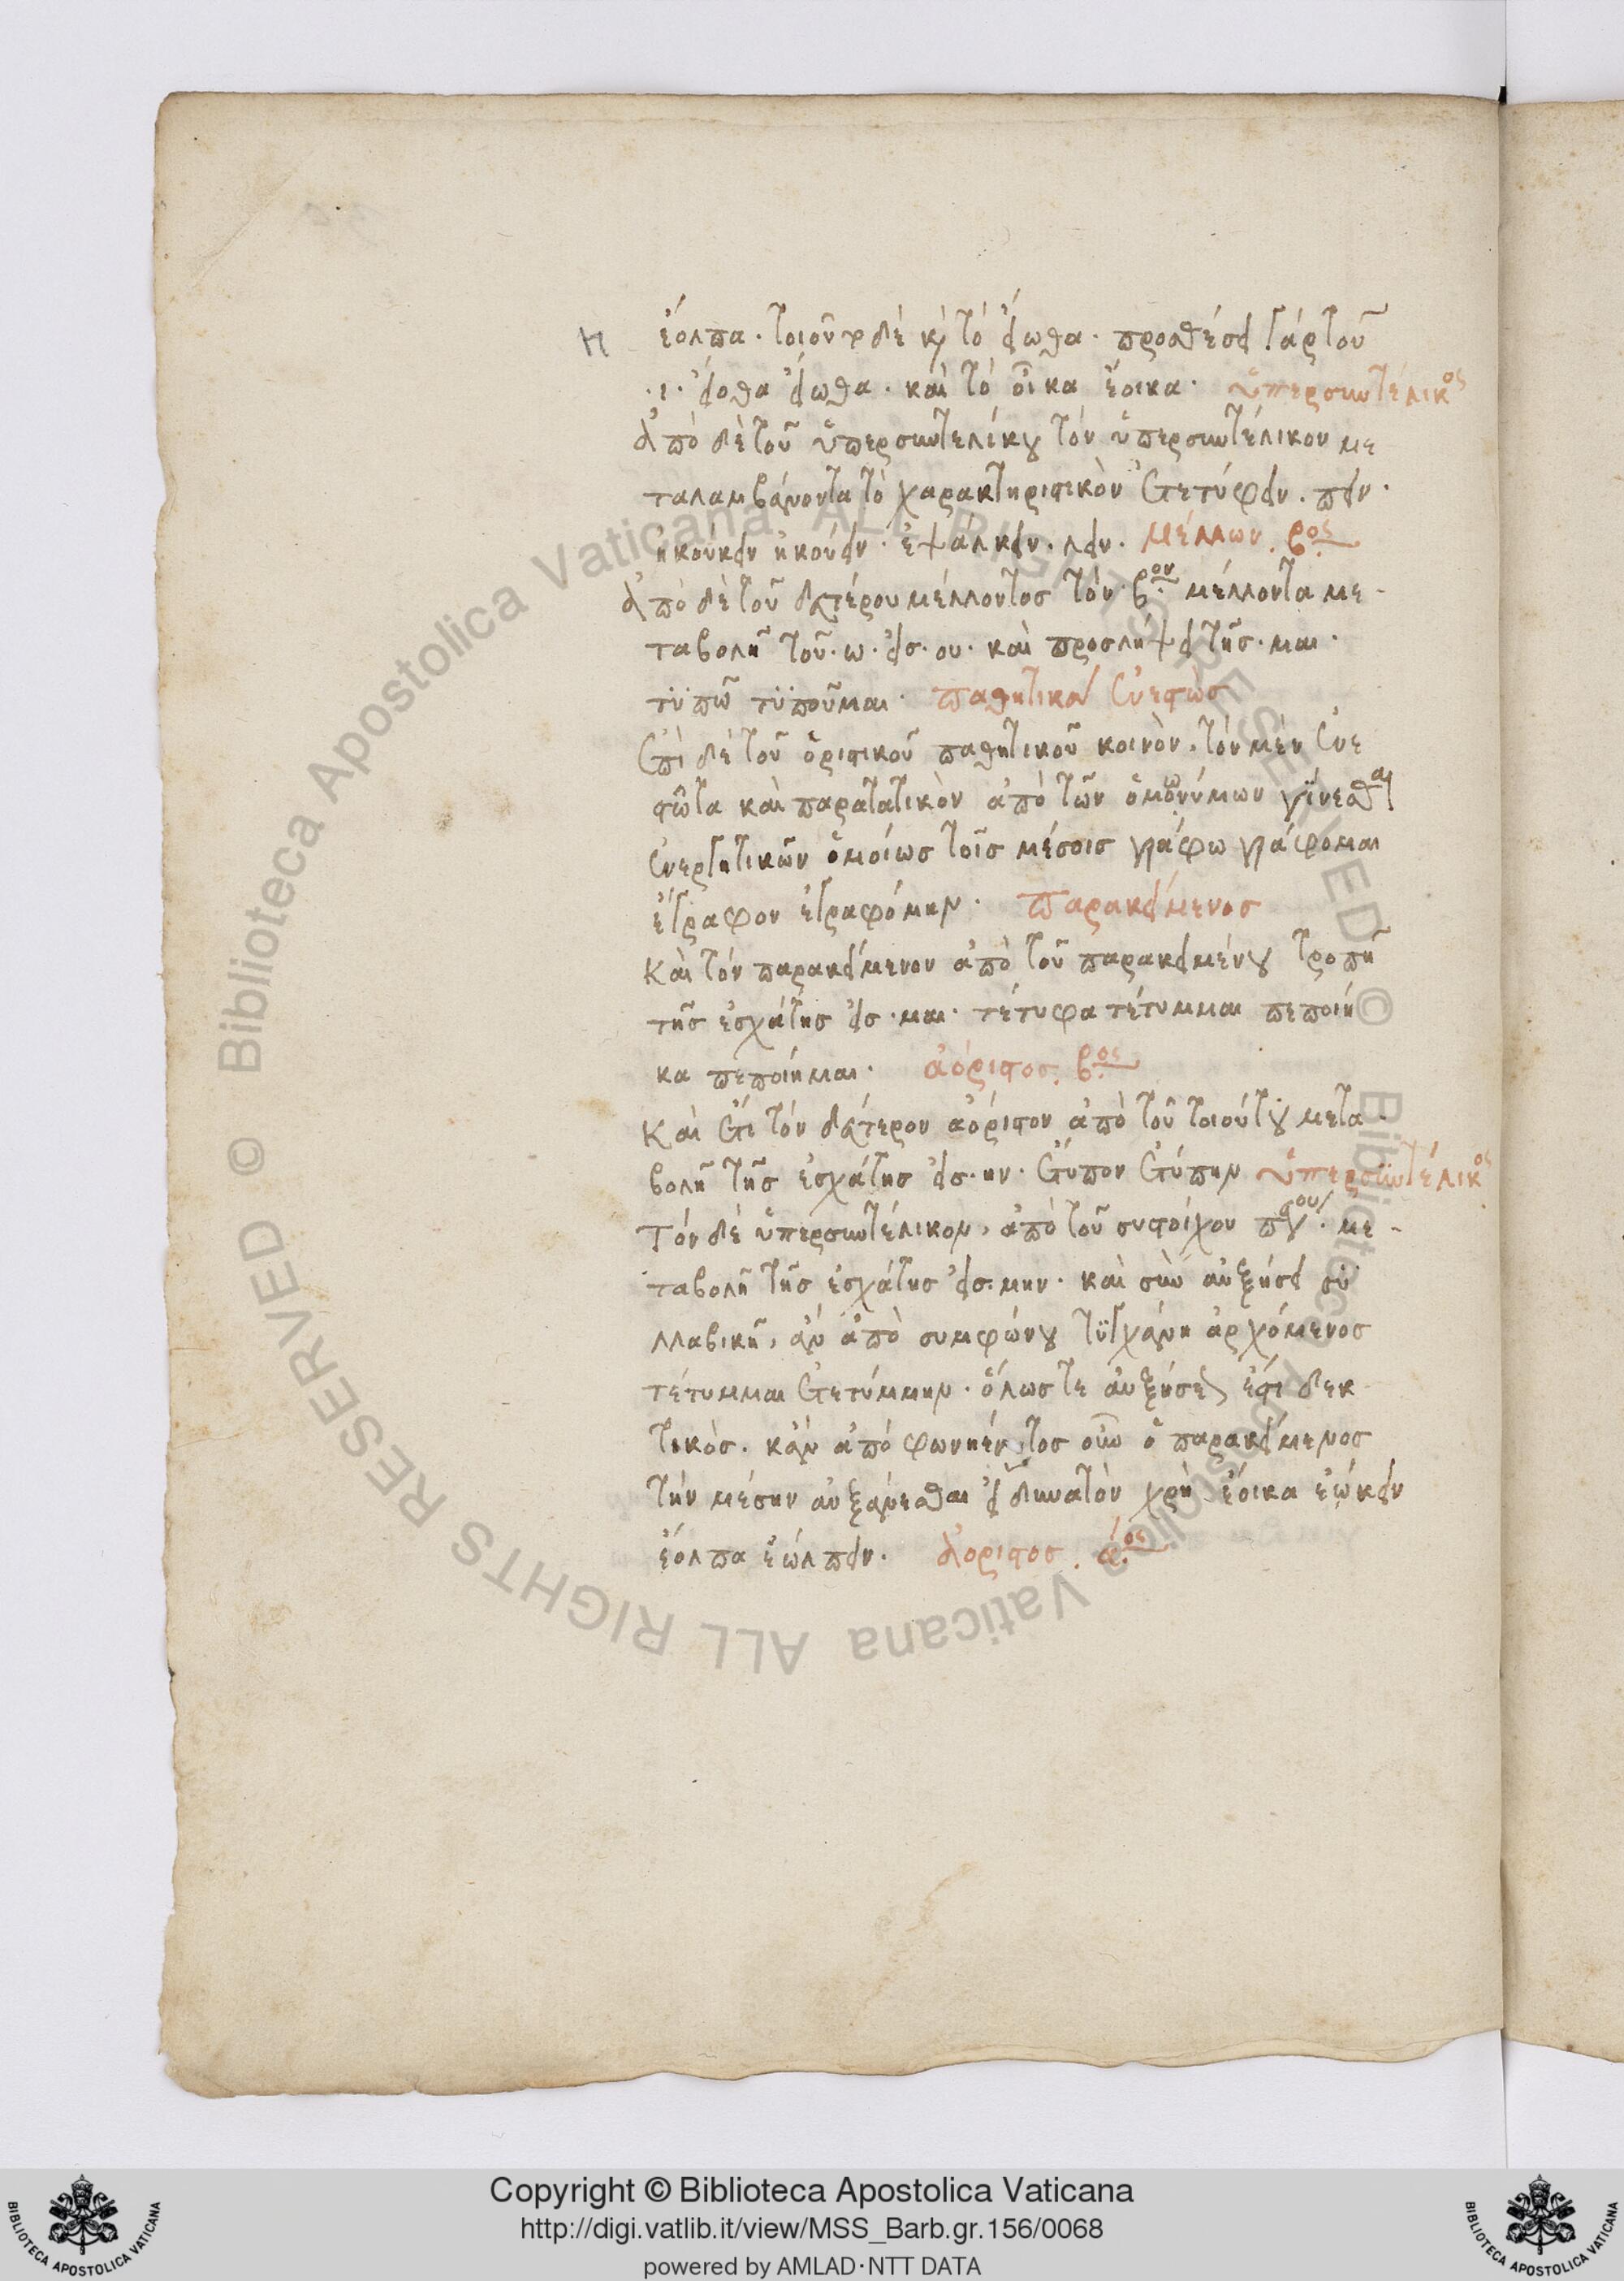 ἔολπα· τοιοῦτον δὲ καὶ τὸ εἴωθα· προσθέσει γὰρ τοῦ
·ι· εἴοθα εἴωθα· καὶ τὸ οἶκα ἔοικα· ὑπερσυντέλικος
Ἀπὸ δὲ τοῦ ὑπερσυντελίκου τὸν ὑπερσυντέλικον με
ταλαμβάνοντα τὸ χαρακτηριστικὸν ἐτετύφειν· πειν·
ἠκούκειν ἠκούειν· ἐψάλκειν· λειν· μέλλων. βος
Ἀπὸ δὲ τοῦ δευτέρου μέλλοντος τὸν βον μέλλοντα με-
ταβολῇ τοῦ·ω·εἰς·ου· καὶ προσλήψει τῆς·μαι·
τϋπῶ τϋποῦμαι· παθητικὰ ἐνεστὼς
Ἐπὶ δὲ τοῦ ὁριστικοῦ παθητικοῦ κοινὸν, τὸν μὲν ἐνε
στῶτα καὶ παρατατικὸν ἀπὸ τῶν ὁμωνύμων γίνεσθαι
ἐνεργητικῶν ὁμοίως τοῖς μέσοις γράφω γράφομαι
ἔγραφον ἐγραφόμην· παρακείμενος
Καὶ τὸν παρακείμενον ἀπὸ τοῦ παρακειμένου τροπῇ
τῆς ἐσχάτης εἰς·μαι· τέτυφα τέτυμμαι πεποίη
κα πεποίημαι· ἀόριστος. βος
Καὶ ἔτι τὸν δεύτερον ἀόριστον ἀπὸ τοῦ τοιούτου μετα-
βολῇ τῆς ἐσχάτης εἰς·ην· ἔτυπον ἐτύπην ὑπερσυντέλικος
Τὸν δὲ ὑπερσυντέλικον, ἀπὸ τοῦ συστοίχου · με-
ταβολῇ τῆς ἐσχάτης εἰς·μην· καὶ σὺν αὐξήσει συ
λλαβικῇ, ἂν ἀπὸ συμφώνου τϋγχάνῃ ἀρχόμενος
τέτυμμαι ἐτετύμμην· ὅλως τε αὐξήσεως ἐστι δεκ
τικὸς· κἂν ἀπὸ φωνήεντος οὖν ὁ παρακείμενος
τὴν μέσην αὐξάνεσθαι εἰ δυνατὸν χρὴ ἔοικα ἐῴκειν
ἔολπα ἐώλπειν· Ἀόριστος. αος
Copyright © Biblioteca Apostolica Vaticana
http://digi.vatlib.it/view/MSS_Barb.gr.156/0068
powered by AMLAD·NTT DATA